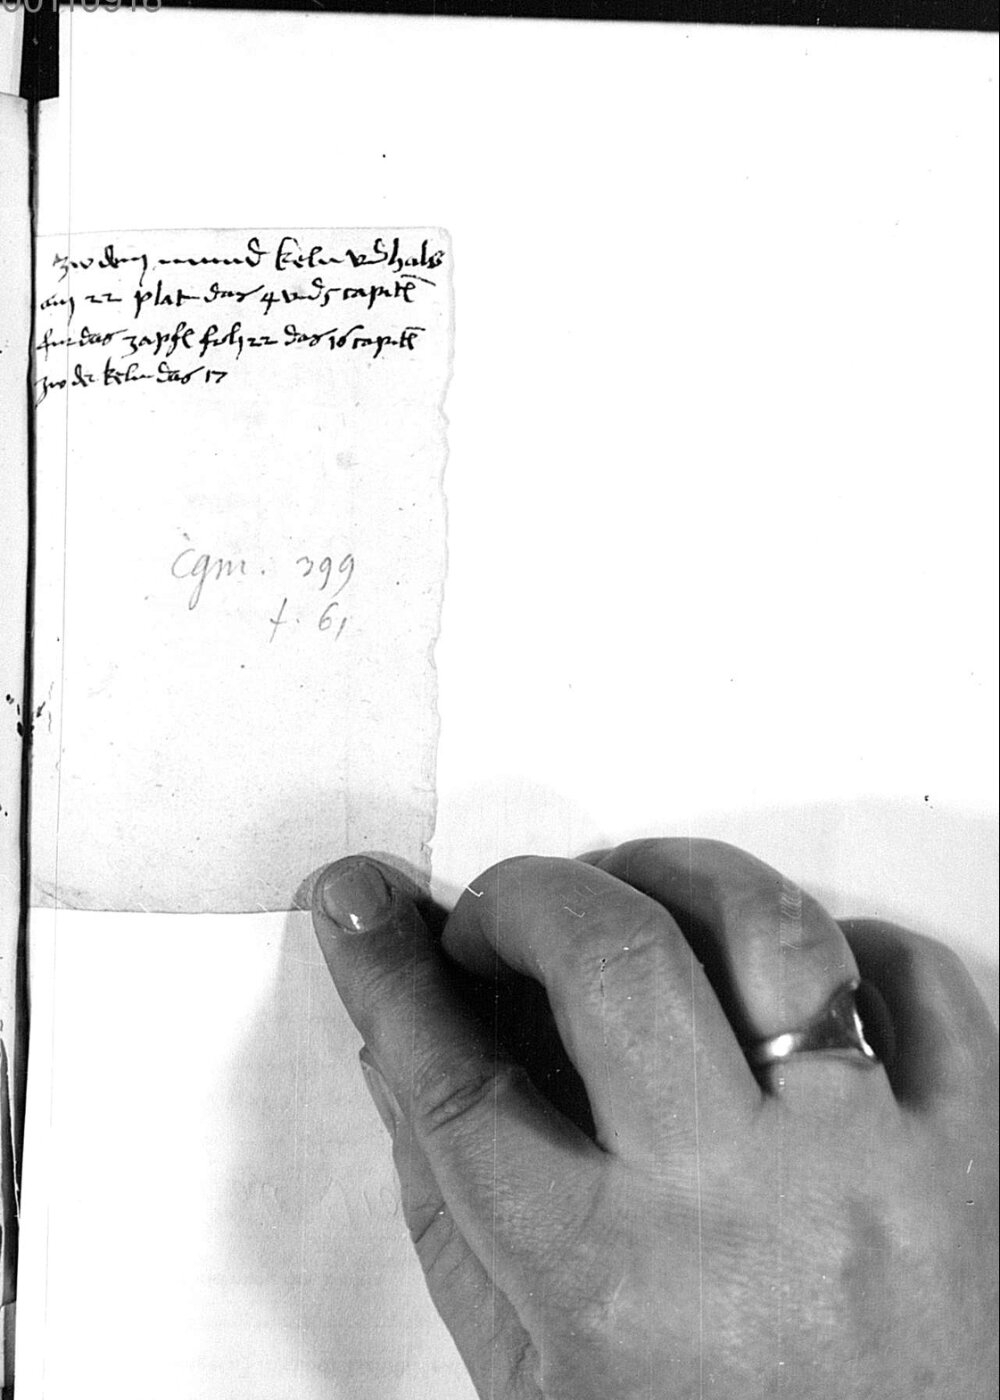 00110918
zw dem mund keln vnd hals
am 22 plat das 4 vnd 5 capitel
fur das zapfl foli 22 das 16 capitel
zw der keln das 17
Cgm. 399
f. 61